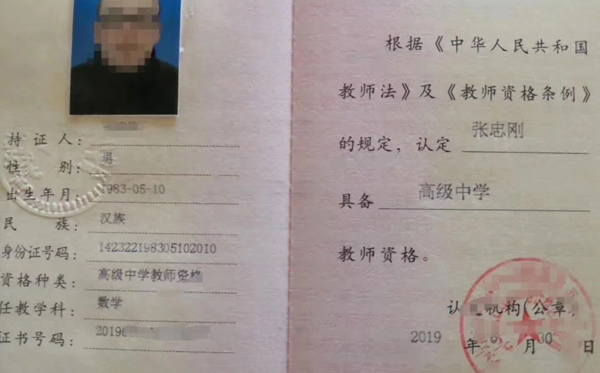 持证人：
性别：男
出生年月：1983-05-10
民族：汉族
身份证号码：142322198305102010
资格种类：高级中学教师资格
任教学科：数学
证书号码：2019
根据《中华人民共和国
教师法》及《教师资格条例》
的规定，认定 张忠刚
具备 高级中学
教师资格。
认 机构（公章）
2019 年 月 30 日